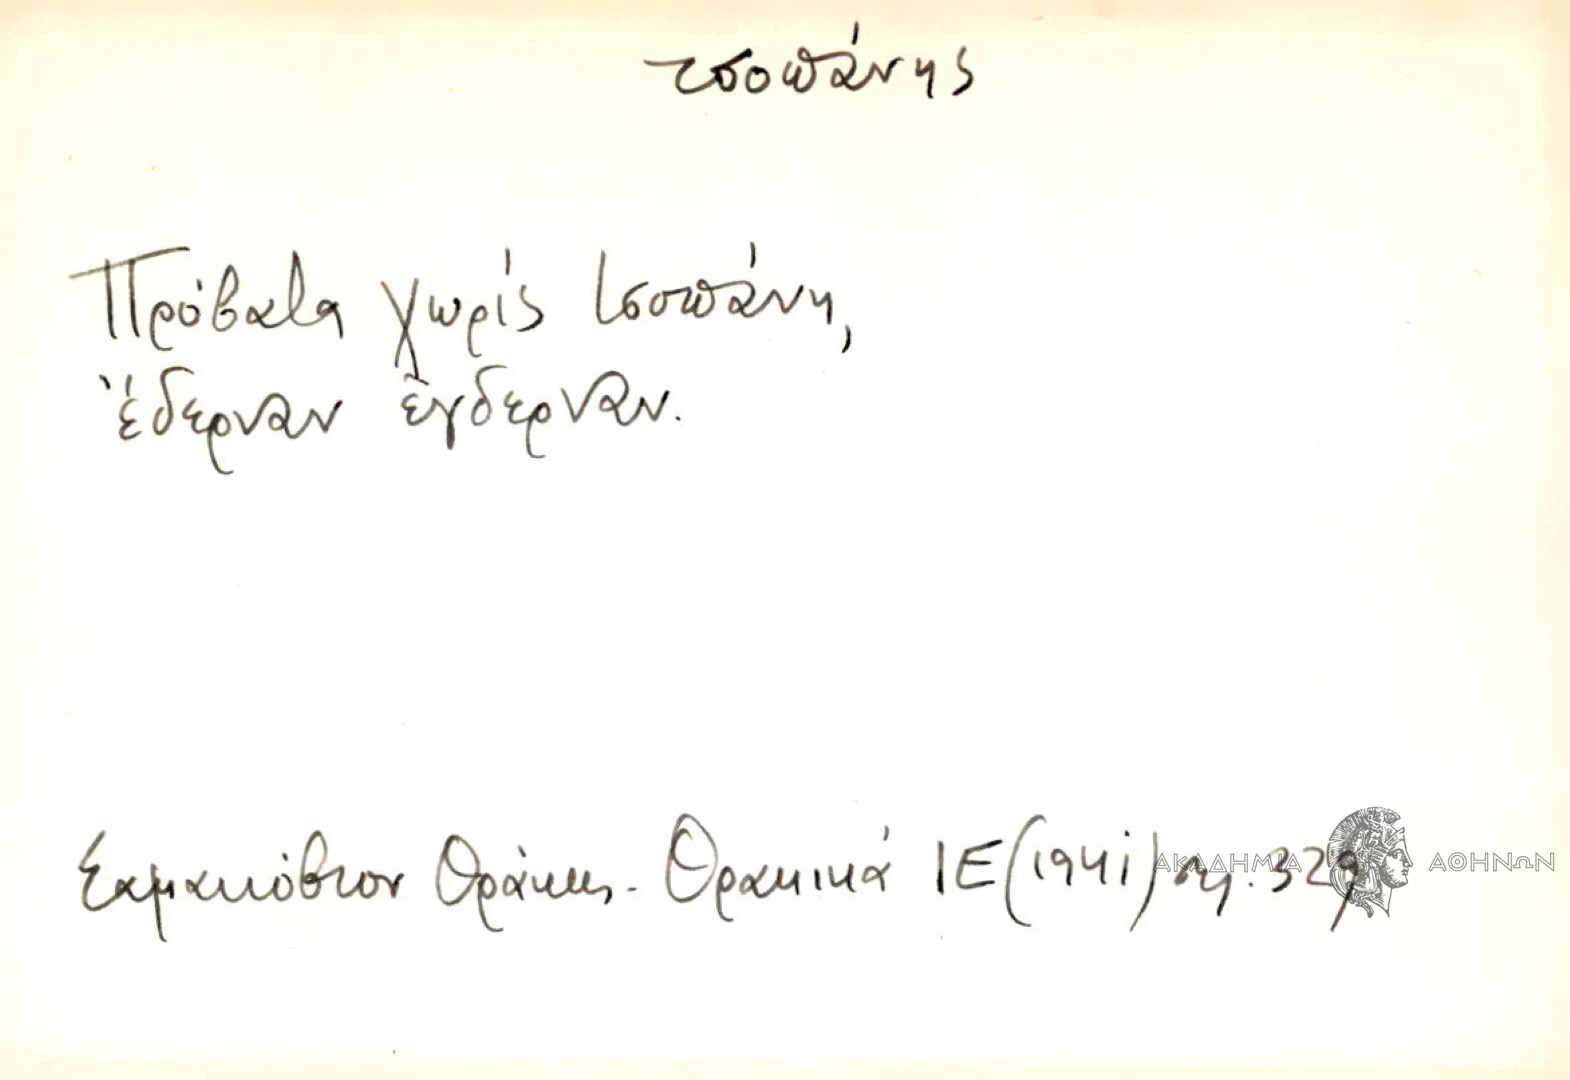 τσοπάνης
Πρόβατα χωρίς τσοπάνη,
ἔδερναν ἐγδερναν.
Σαμακόβιον Θράκης - Θρακικά ΙΕ (1941) σελ. 329
ΑΚΑΔΗΜΙΑ ΑΘΗΝΩΝ